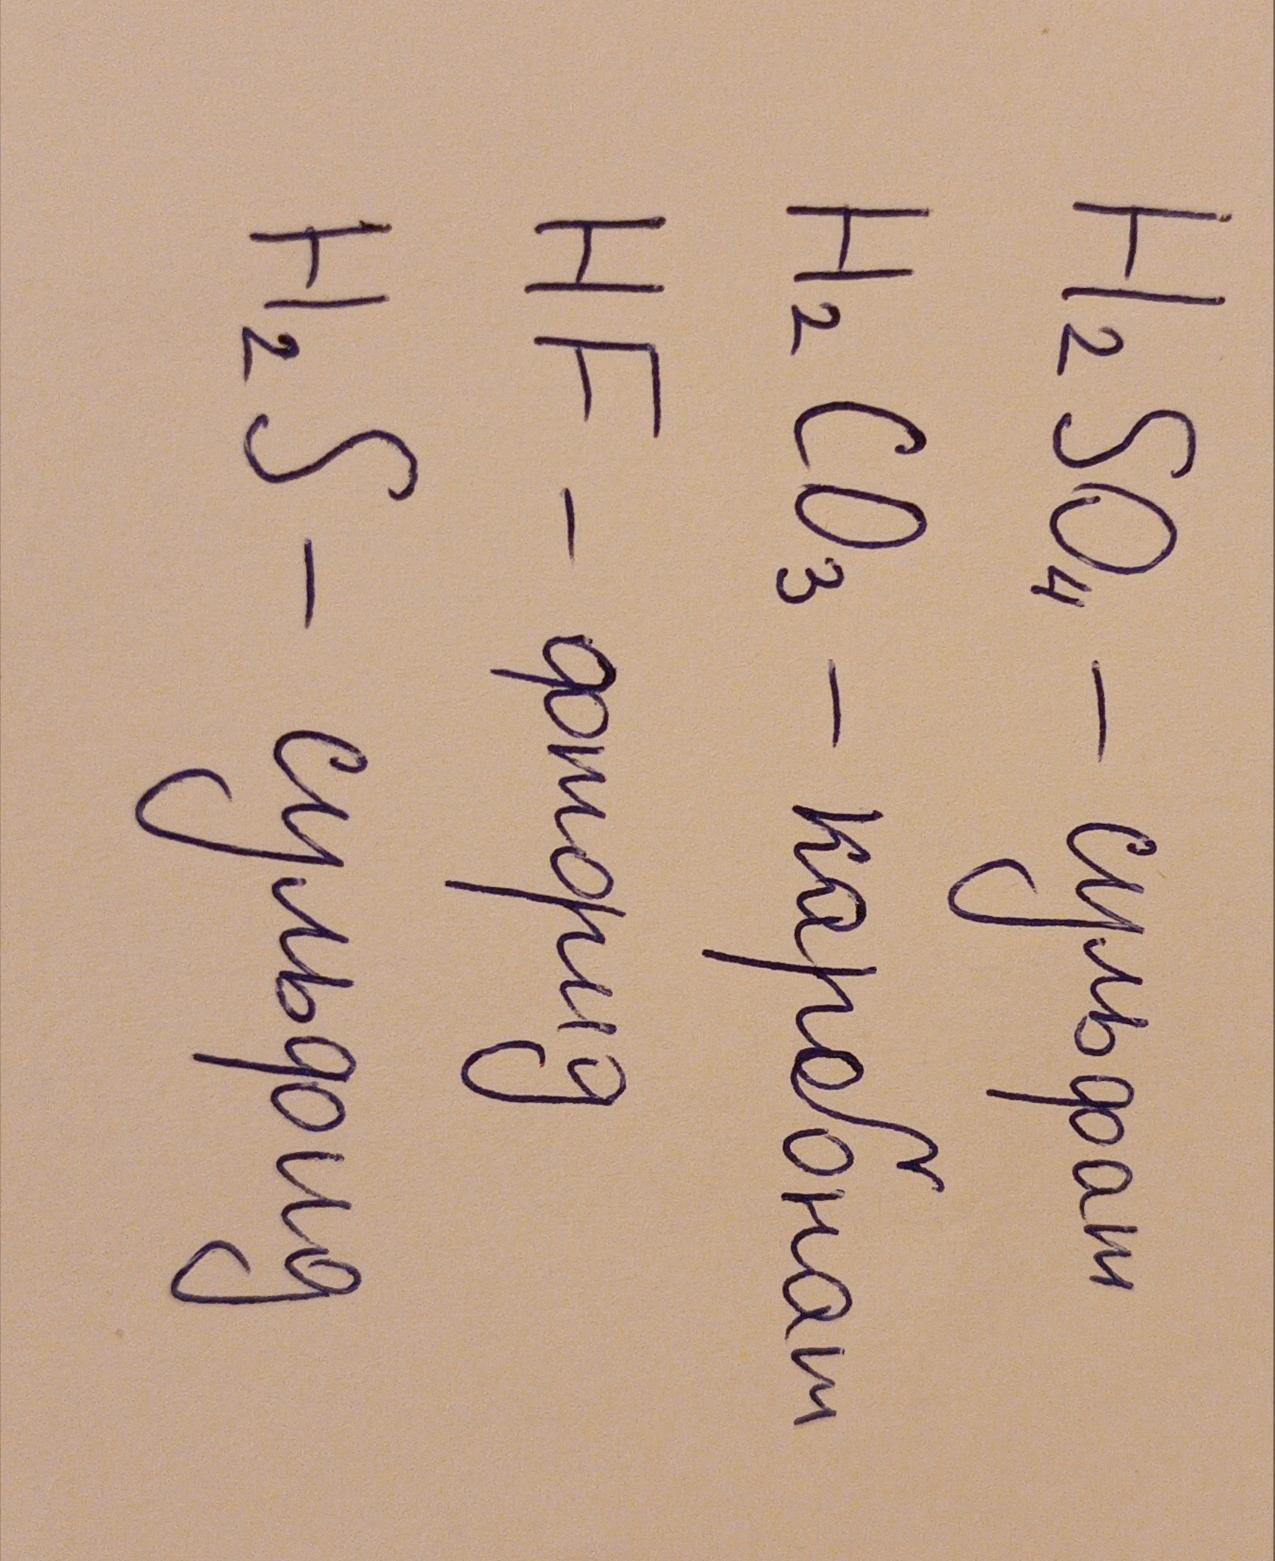 H₂SO₄ – сульфат
H₂CO₃ – каребонат
HF – фторид
H₂S – сульфид